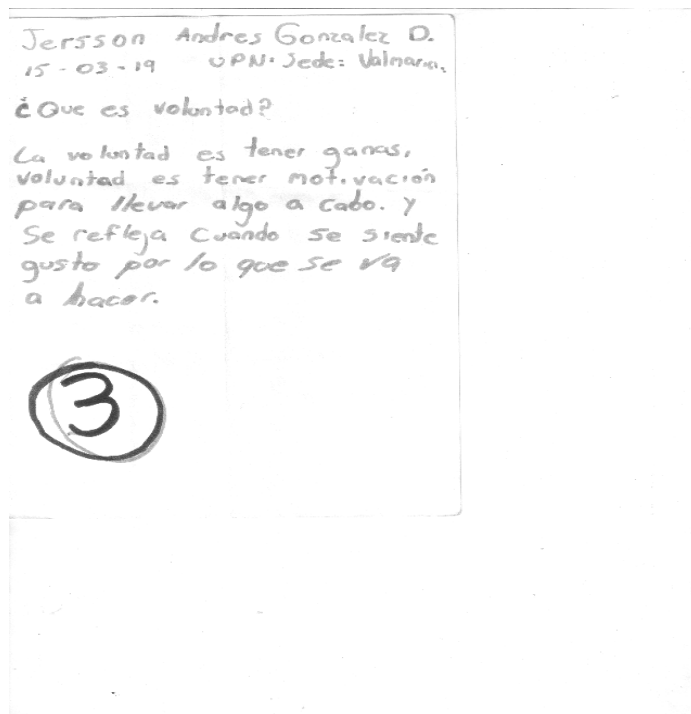 Jersson Andres Gonzalez D.
15-03-19 UPN. Sede: Valmaria.
¿Que es voluntad?
La voluntad es tener ganas,
voluntad es tener motivación
para llevar algo a cabo. y
Se refleja cuando se siente
gusto por lo que se va
a hacer.
3